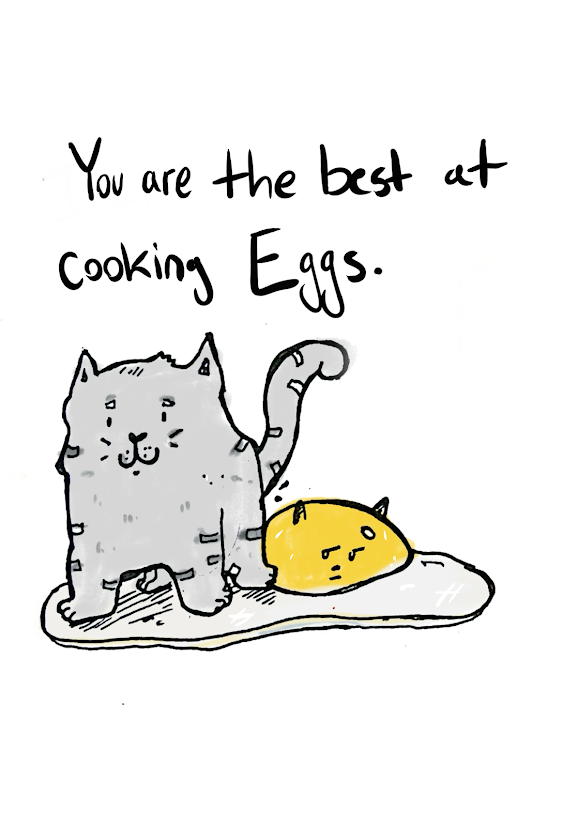 You are the best at
cooking Eggs.